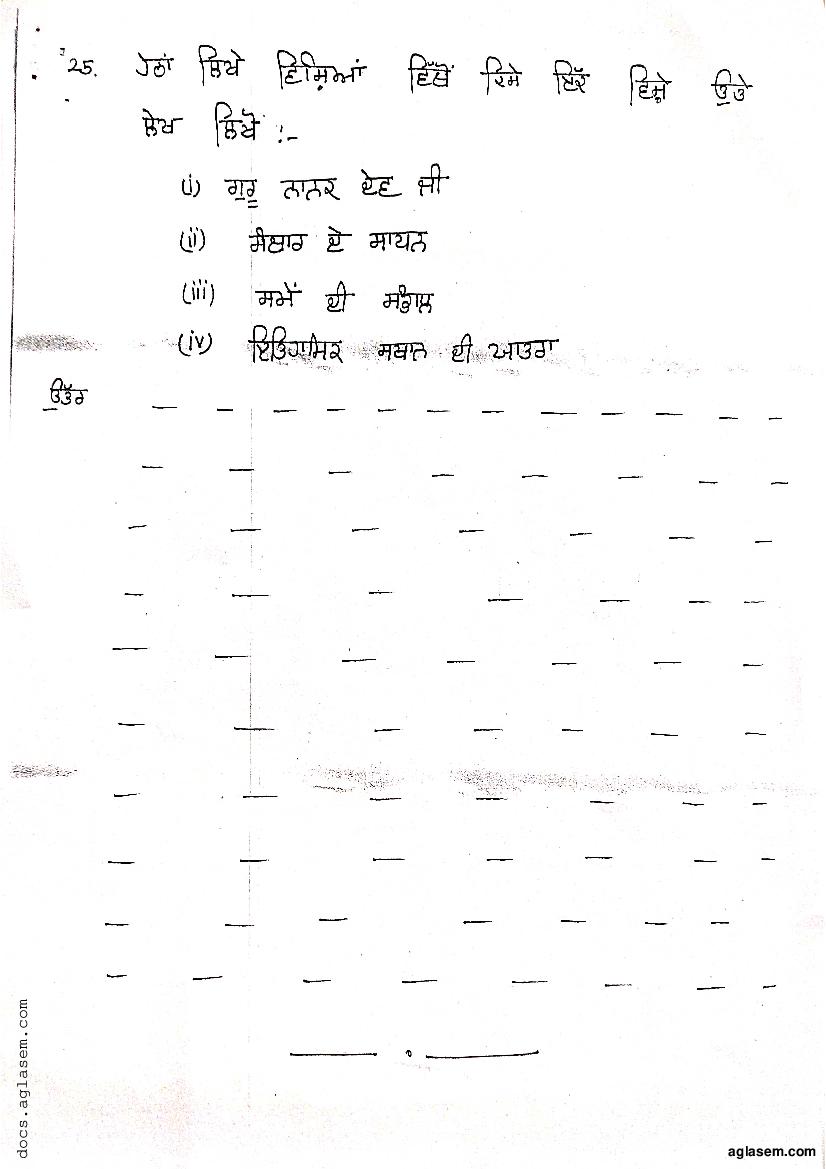 25. ਹੇਠਾਂ ਲਿਖੇ ਵਿਸ਼ਿਆਂ ਵਿੱਚੋਂ ਕਿਸੇ ਇੱਕ ਵਿਸ਼ੇ ਉਤੇ
ਲੇਖ ਲਿਖੋ :-
(i) ਗੁਰੂ ਨਾਨਕ ਦੇਵ ਜੀ
(ii) ਸੰਚਾਰ ਦੇ ਸਾਧਨ
(iii) ਸਮੇਂ ਦੀ
(iv) ਇਤਿਹਾਸਿਕ ਸਥਾਨ ਦੀ ਯਾਤਰਾ
ਉੱਤਰ
docs.aglasem.com
aglasem.com